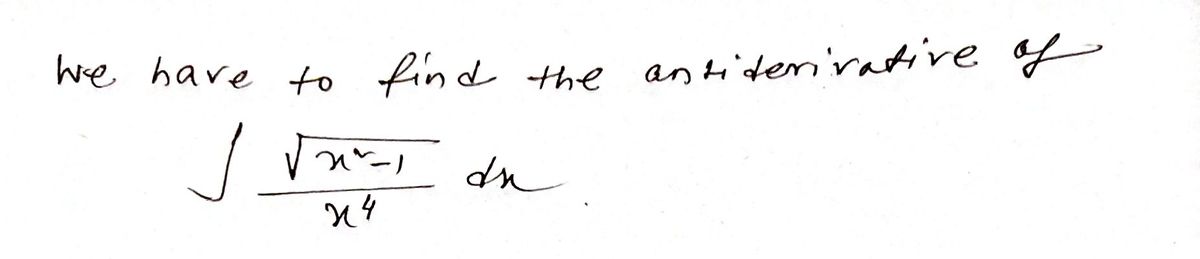 We have to find the antiderivative of
∫ √(x²-1) / x⁴ dx